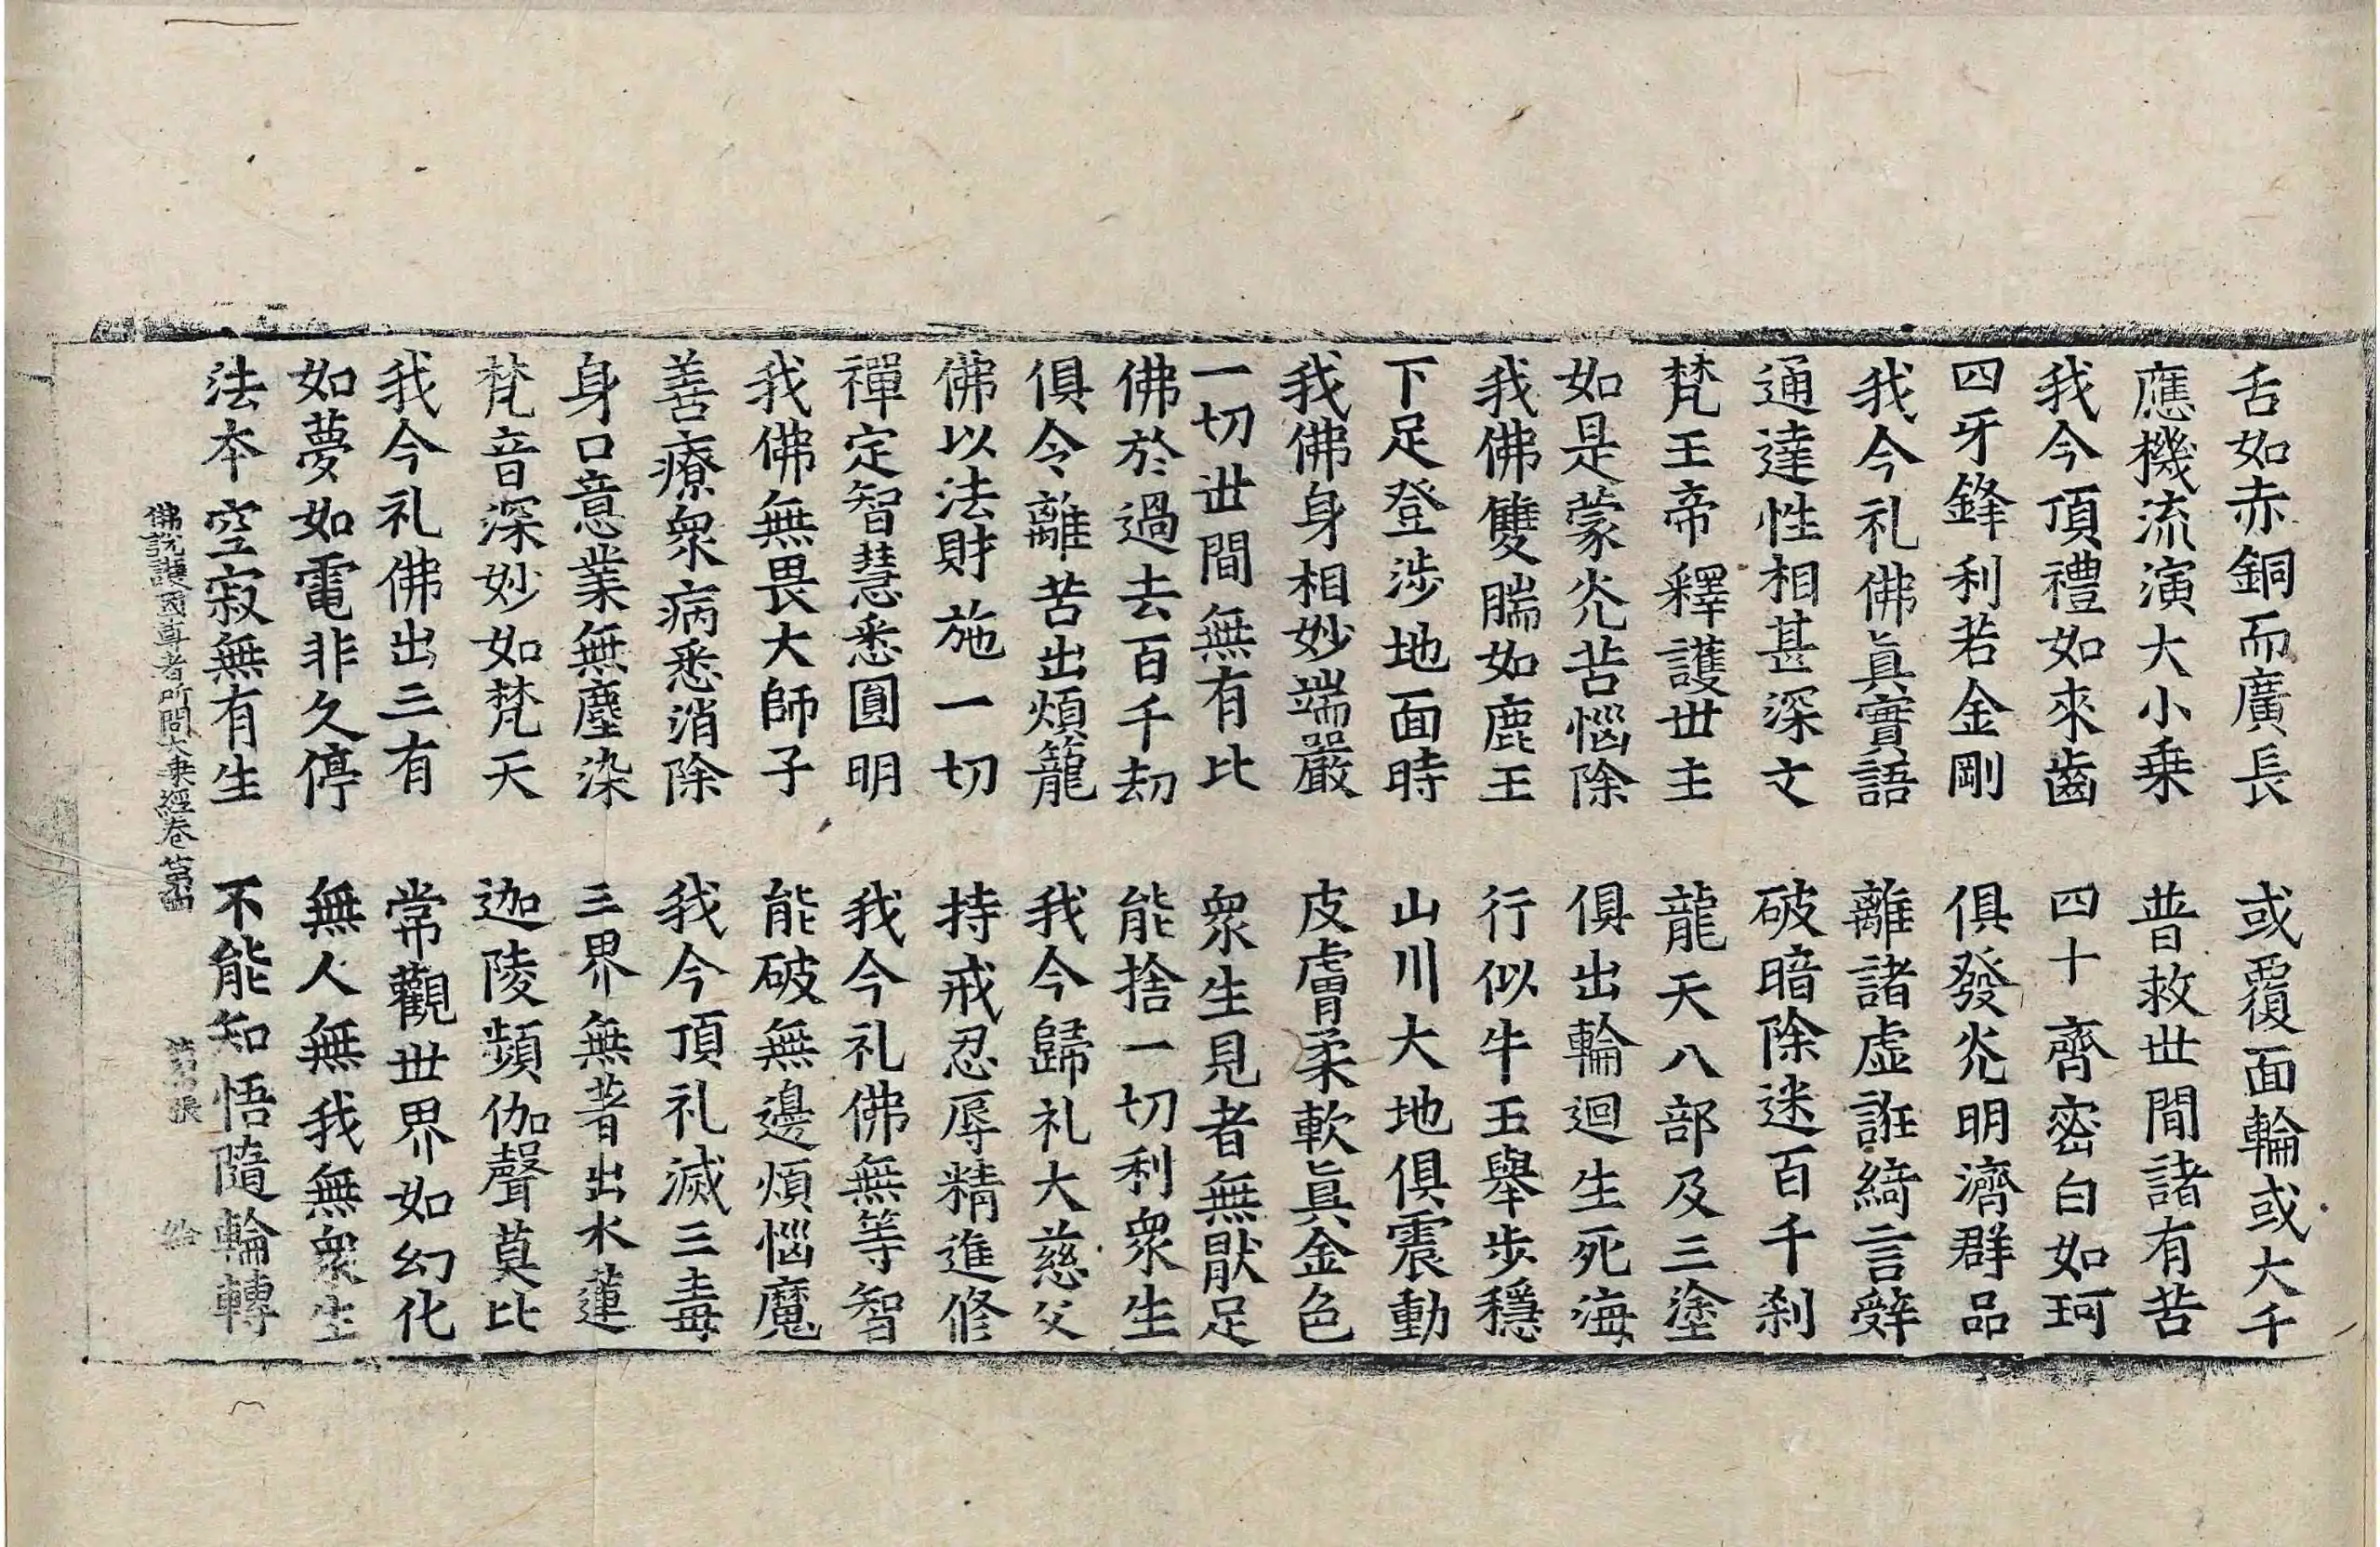 舌如赤銅而廣長　或覆面輪或大千
應機流演大小乗　普救世間諸有苦
我今頂禮如來齒　四十齊密白如珂
四牙鋒利若金剛　俱發光明濟群品
我今礼佛眞實語　離諸虛誑綺言辝
通達性相甚深文　破暗除迷百千刹
梵王帝釋護世主　龍天八部及三塗
如是蒙光苦惱除　俱出輪迴生死海
我佛雙腨如鹿王　行似牛王舉步穩
下足登涉地面時　山川大地俱震動
我佛身相妙端嚴　皮膚柔軟眞金色
一切世間無有比　衆生見者無猒足
佛於過去百千劫　能捨一切利衆生
俱令離苦出煩籠　我今歸礼大慈父
佛以法財施一切　持戒忍辱精進修
禪定智慧悉圓明　我今礼佛無等智
我佛無畏大師子　能破無邊煩惱魔
善療衆病悉消除　我今頂礼滅三毒
身口意業無塵染　三界無著出水蓮
梵音深妙如梵天　迦陵頻伽聲莫比
我今礼佛出三有　常觀世界如幻化
如夢如電非久停　無人無我無衆生
法本空寂無有生　不能知悟隨輪轉
佛說護國尊者所問大乗經卷第四　第　張　給